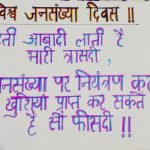 विश्व जनसंख्या दिवस !!
ती आबादी लाती है
भारी त्रासदी ,
जनसंख्या पर नियंत्रण कर
खुशियां प्राप्त कर सकते
हैं सौ फीसदी !!